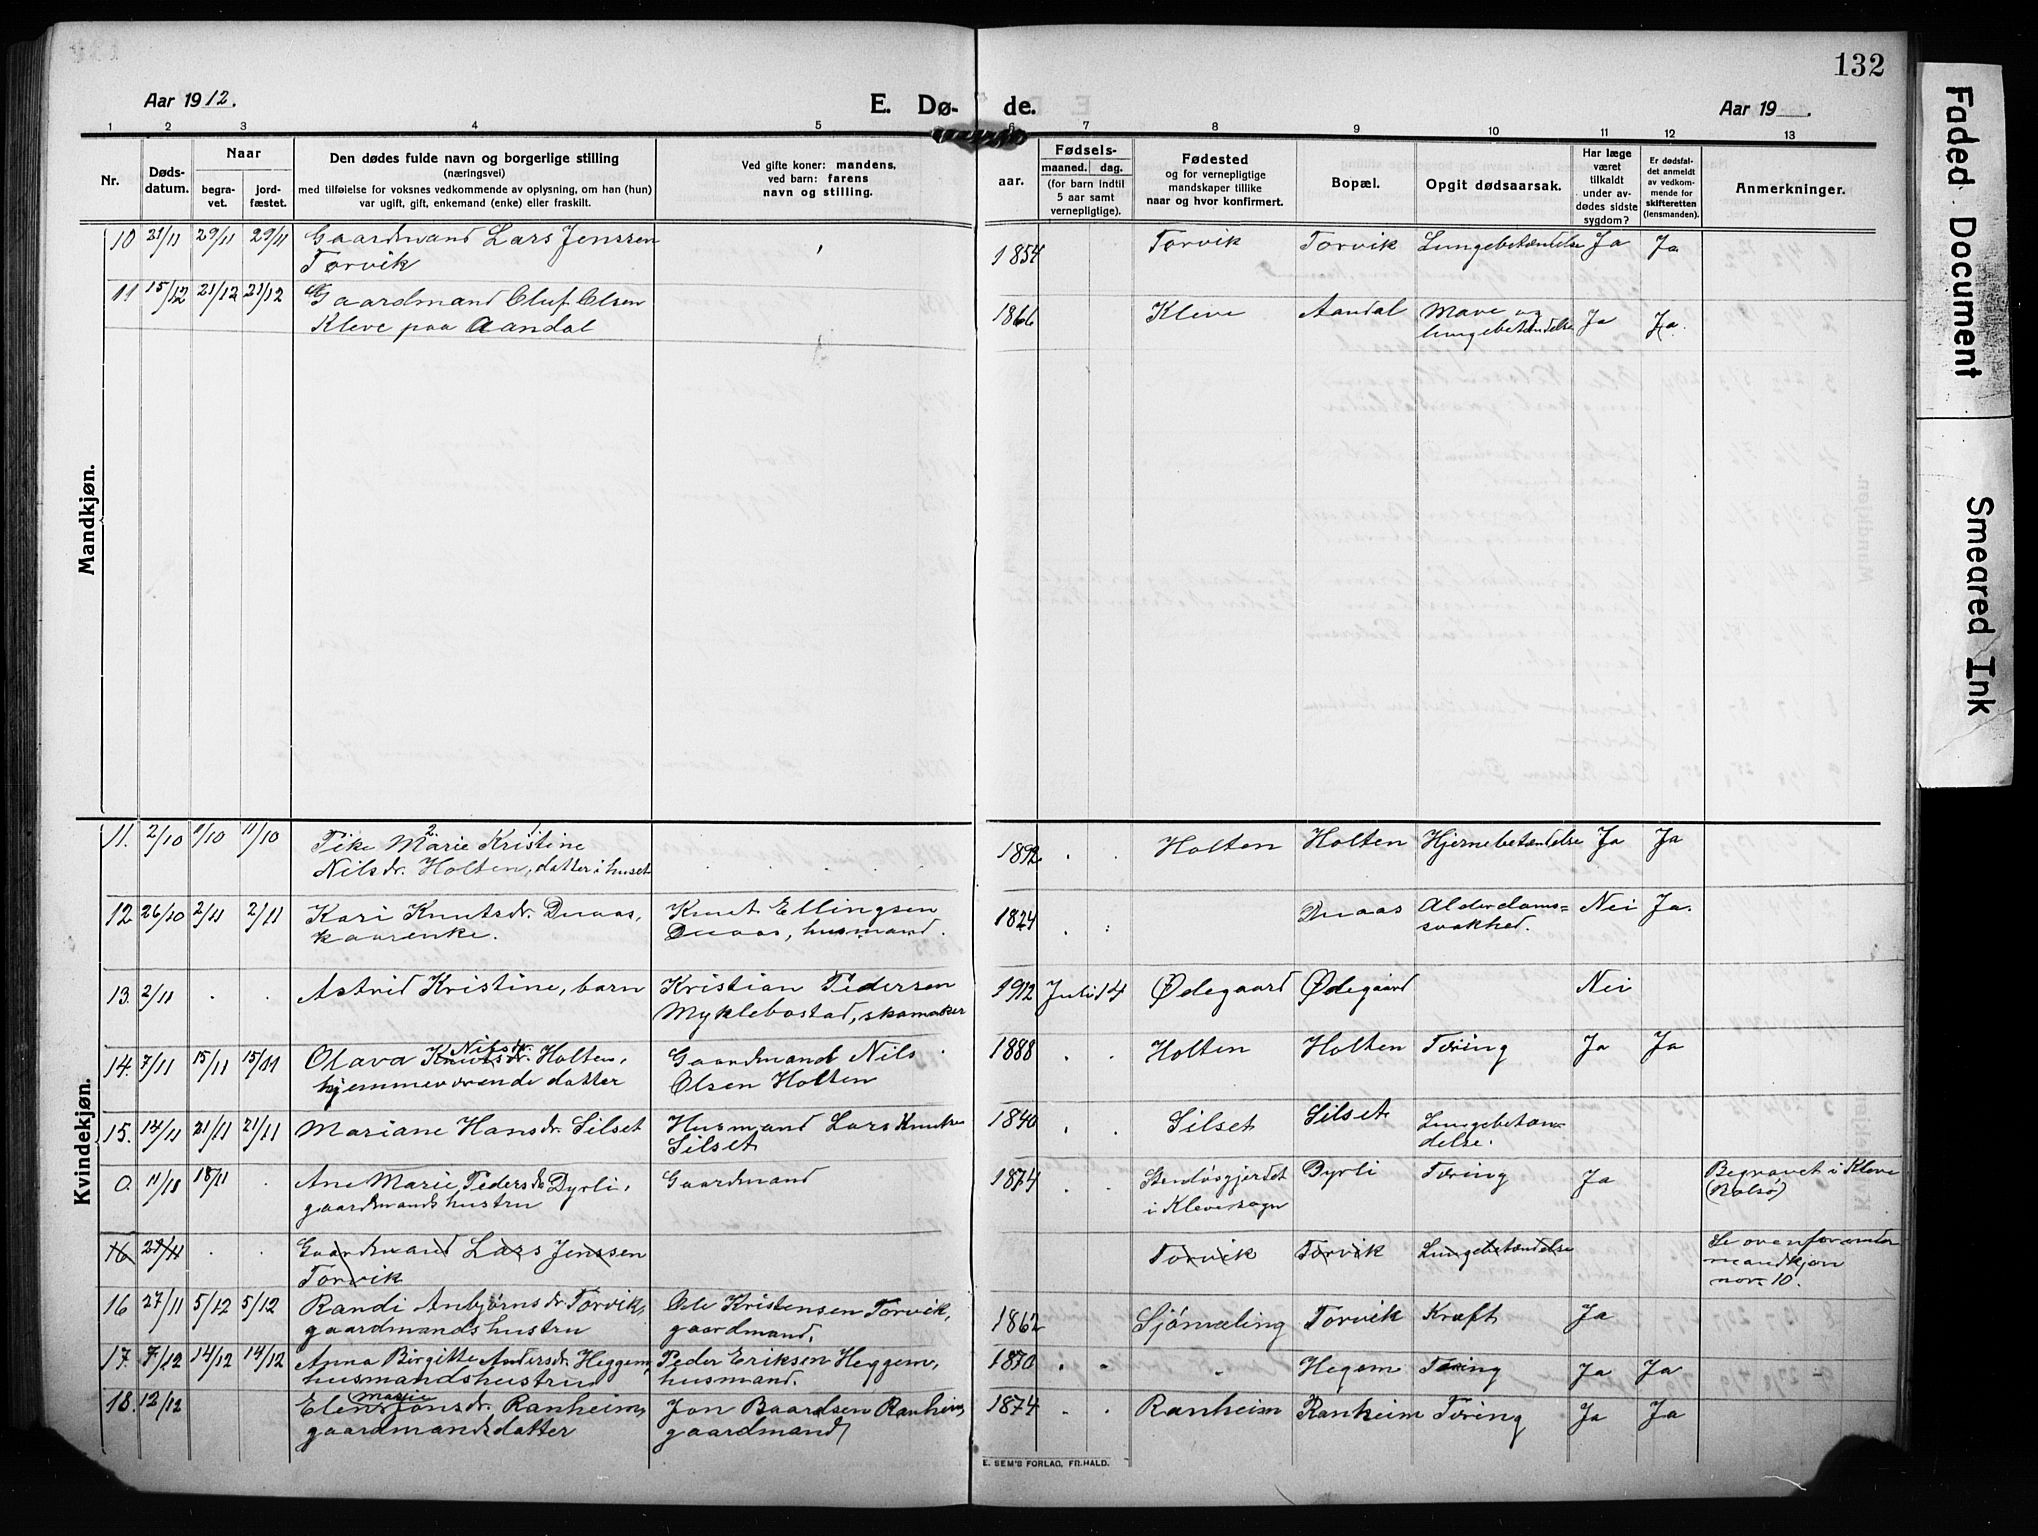 132
Aar 1912.
E. Dø-
de.
Aar 19 .
1 2 3 4 5 6 7 8 9 10 11 12 13
Nr.
Døds-
datum.
Naar
begra-
vet.
jord-
fæstet.
Den dødes fulde navn og borgerlige stilling
(næringsvei)
med tilføielse for voksnes vedkommende av oplysning, om han (hun)
var ugift, gift, enkemand (enke) eller fraskilt.
Ved gifte koner: mandens,
ved barn: farens
navn og stilling.
aar.
Fødsels-
maaned. dag.
(for barn indtil
5 aar samt
vernepligtige).
Fødested
og for vernepligtige
mandskaper tillike
naar og hvor konfirmert.
Bopæl.
Opgit dødsaarsak.
Har læge
været
tilkaldt
under av-
dødes sidste
sygdom?
Er dødsfal-
det anmeldt
av vedkom-
mende for
skifteretten
(lensmanden).
Anmerkninger.
Mandkjøn.
10 21/11 29/11 29/11 Gaardmand Lars Jenssen 1854 Torvik Torvik Lungebetændelse Ja Ja
Torvik
11 15/12 21/12 21/12 Gaardmand Oluf Olsen 1866 Kleve Aandal Mave og Ja Ja.
Kleve paa Aandal lungebetændelse
Kvindekjøn.
11. 2/10 11/10 Tike Marie Kristine 1892 Holten Holten Hjernebetændelse Ja Ja
2. 1
Nilsdr. Holten, datter i huset
12 26/10 2/11 2/11 Kari Knutsdr. Duaas, Knut Ellingsen 1824 Duaas Alderdoms= Nei Ja.
kaarenke. Duaas, husmand. svakhed.
13. 2/11 Astrid Kristine, barn Kristian Pedersen 1912 Juli 14 Ødegaard Ødegaard Nei
Myklebostad, skomaker
14. 7/11 15/11 15/11 Olava Knutsdr. Nilsdr. Holten, Gaardmand Nils 1888 Holten Holten Tæring Ja Ja
hjemmeværende datter Olsen Holten
15. 14/11 21/11 21/11 Mariane Hansdr. Silset Husmand Lars Knutsen 1840 Silset Silset Lungebetæn=
Silset delse.
0. 11/11 18/11 Ane Marie Pedersdr Dyrli, Gaardmand 1874 i Klevesogn Dyrli Tæring Ja Begravet i Kleve
gaardmandshustru
16 21/11 Gaardmand Lars Jenssen Torvik Torvik Lungebetændelse Se ovenfor under
Torvik mandkjøn
nor 10.
16 27/11 5/12 5/12 Randi Anbjørnsdr Torvik, Ole Kristensen Torvik, 1862 Sjømæling Torvik Kræft Ja
gaardmandshustru gaardmand.
17. 7/12 14/12 14/12 Anna Birgitte Andersdr. Heggem, Peder Eriksen Heggem, 1870 Hegem Tæring Ja Ja
husmandshustru husmand.
18. 12/12 Elen Marie Jonsdr. Ranheim, Jon Baardsen Ranheim, 1874 Ranheim Ranheim Tæring Ja Ja
gaardmandsdatter gaardmand
E. SEM'S FORLAG, FR.HALD.
Faded Document
Smeared Ink